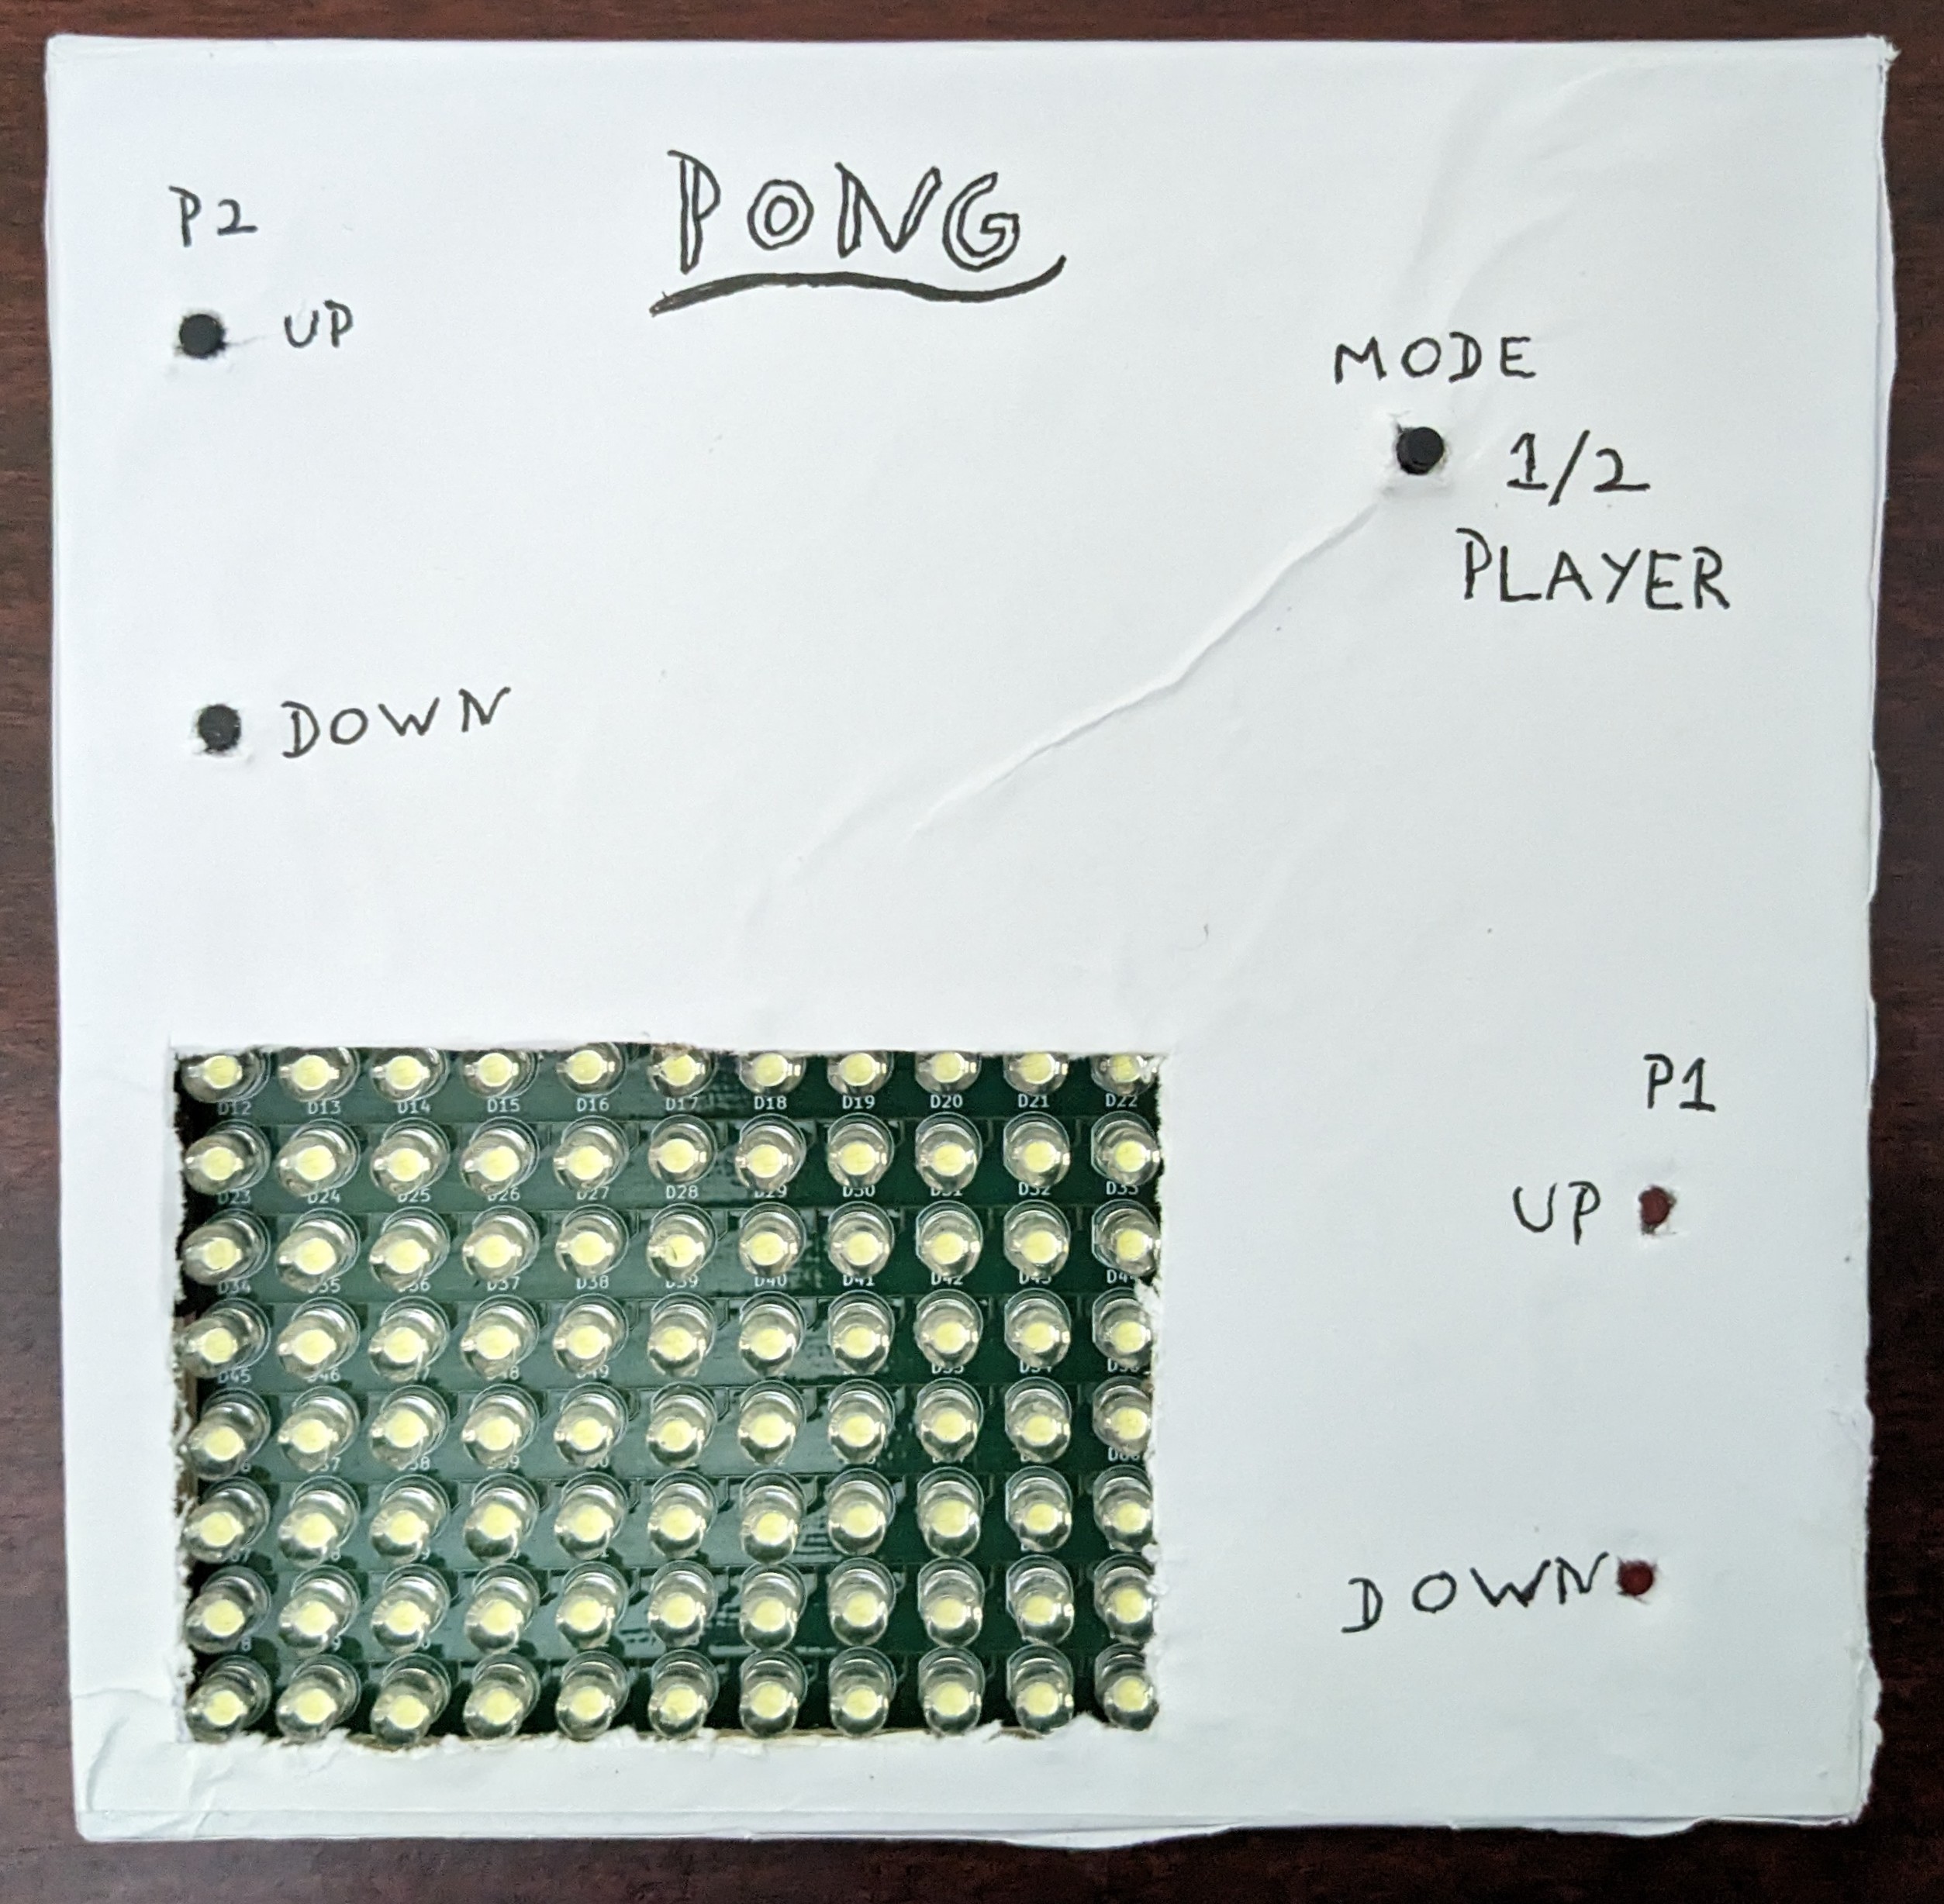 PONG
P2
UP
MODE
1/2
PLAYER
DOWN
D12 D13 D14 D15 D16 D17 D18 D19 D20 D21 D22
D23 D24 D25 D26 D27 D28 D29 D30 D31 D32 D33
D34 D35 D36 D37 D38 D39 D40 D41 D42 D43
D45
P1
UP
DOWN